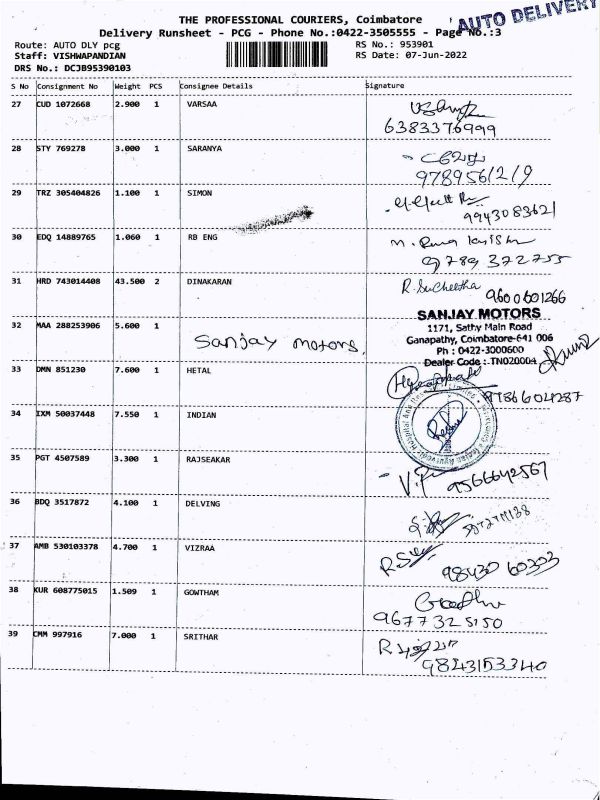 THE PROFESSIONAL COURIERS, Coimbatore
AUTO DELIVERY
Delivery Runsheet - PCG - Phone No.:0422-3505555 - Page No.:3
Route: AUTO DLY pcg
RS No.: 953901
Staff: VISHWAPANDIAN
RS Date: 07-Jun-2022
DRS No.: DCJB95390103
S No Consignment No Weight PCS Consignee Details Signature
27 CUD 1072668 2.900 1 VARSAA
6383376999
28 STY 769278 3.000 1 SARANYA
9789561219
29 TRZ 305404826 1.100 1 SIMON
9943083621
30 EDQ 14889765 1.060 1 RB ENG
9789372755
31 HRD 743014408 43.500 2 DINAKARAN R. Sucheetha
9600601266
SANJAY MOTORS
1171, Sathy Main Road
32 MAA 288253906 5.600 1 Sanjay motors,
Ganapathy, Coimbatore-641 006
Ph : 0422-3000600
Dealer Code : TN020004
33 DMN 851230 7.600 1 HETAL
9786604287
34 IXM 50037448 7.550 1 INDIAN
35 PGT 4507589 3.300 1 RAJSEAKAR
9566642567
36 BDQ 3517872 4.100 1 DELVING
37 AMB 530103378 4.700 1 VIZRAA
9843060303
38 KUR 608775015 1.509 1 GOWTHAM
9677325150
39 CMM 997916 7.000 1 SRITHAR
9843153340